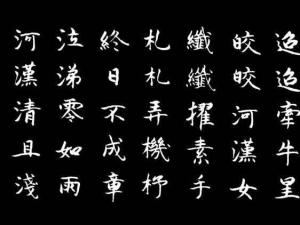 迢迢牽牛星
皎皎河漢女
纖纖擢素手
札札弄機杼
終日不成章
泣涕零如雨
河漢清且淺